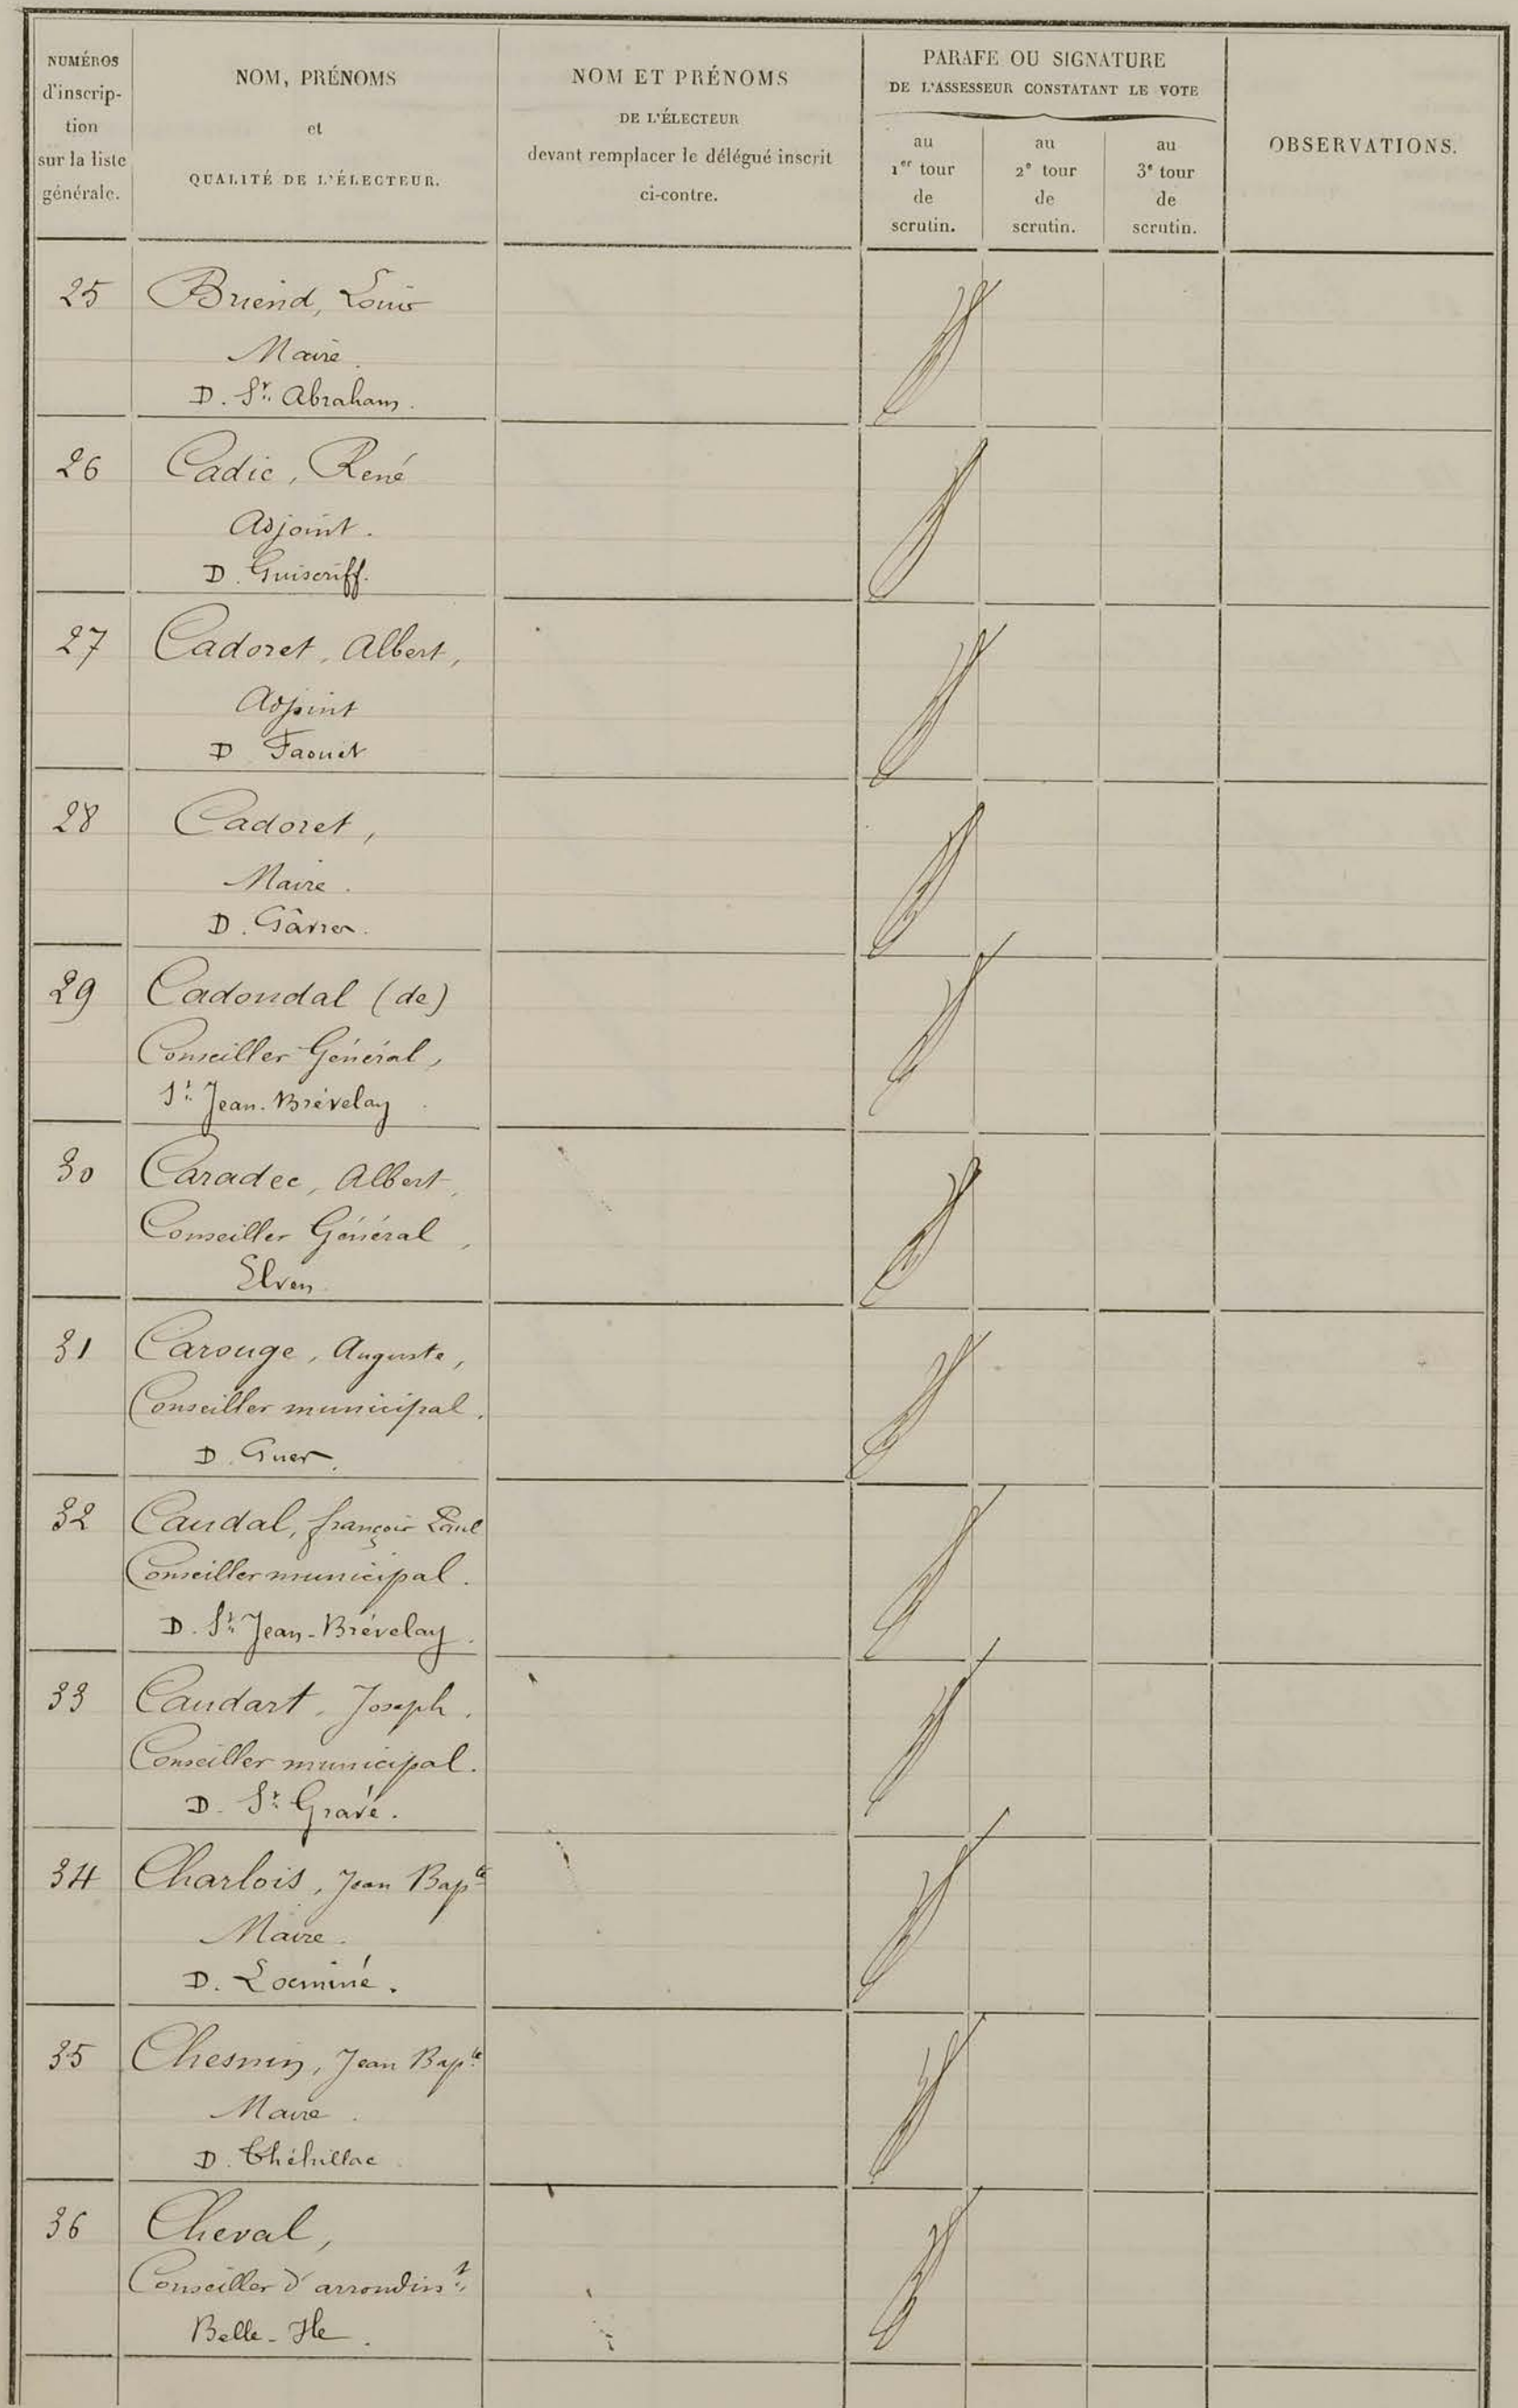 NUMÉROS
d'inscrip-
tion
sur la liste
générale.
NOM, PRÉNOMS
et
QUALITÉ DE L'ÉLECTEUR.
NOM ET PRÉNOMS
DE L'ÉLECTEUR
devant remplacer le délégué inscrit
ci-contre.
PARAFE OU SIGNATURE
DE L'ASSESSEUR CONSTATANT LE VOTE
au
1er tour
de
scrutin.
au
2e tour
de
scrutin.
au
3e tour
de
scrutin.
OBSERVATIONS.
25 Briend, Louis
Maire.
D. St. Abraham.
26 Cadic, René
Adjoint.
D. Guiscriff.
27 Cadoret, Albert,
Adjoint
D Faouet
28 Cadoret,
Maire.
D. Gâvres.
29 Cadoudal (de)
Conseiller Général,
St Jean-Brévelay.
30 Caradec, Albert,
Conseiller Général,
Elven
31 Carouge, Auguste,
Conseiller municipal.
D. Guer.
32 Caudal, françois Paul
Conseiller municipal.
D. St Jean-Brévelay.
33 Caudart, Joseph.
Conseiller municipal.
D. St Gravé.
34 Charlois, Jean Bapte
Maire.
D. Locminé.
35 Chesnin, Jean Bapte
Maire.
D. Théhillac.
36 Cheval,
Conseiller d'arrondisst.
Belle-Ile.